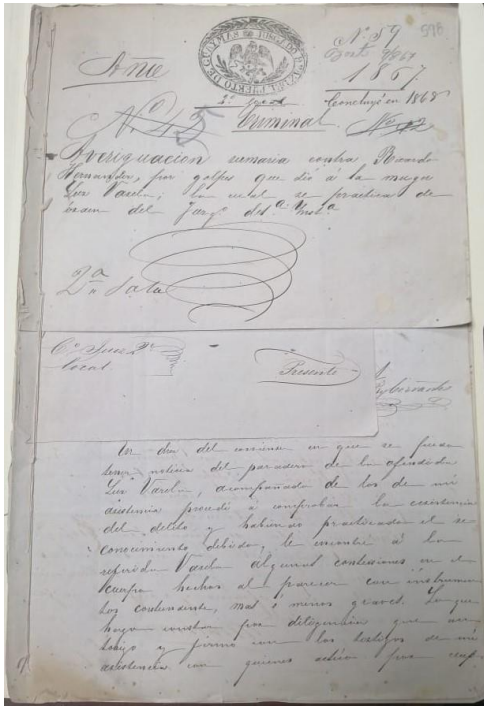 JUZGADO DEL PUERTO DE GUAYMAS
Nº 59
1867
Año
Concluyó en 1868
2º
Criminal
Averiguacion sumaria contra, Ricardo
Hernandez, por golpes que dió á la muger
Luz Varela; la cual se practica de
órden del Juzgº de 1ª Instª
2ª Sala
Cº Juez 2º
Local
Presente
del corriente en que se pudo
tener noticia del paradero de la ofendida
Luz Varela, acompañado de los de mi
asistencia procedí á comprobar la ecsistencia
del delito y habiendo practicado el re
conocimiento debido, le encontré á la
referida Varela algunas contusiones en el
cuerpo hechas al parecer con instrumen
tos contundente, mas ó menos graves. Lo que
hago constar por diligencia que au
torizo y firmo con los testigos de mi
asistencia con quienes actúo por